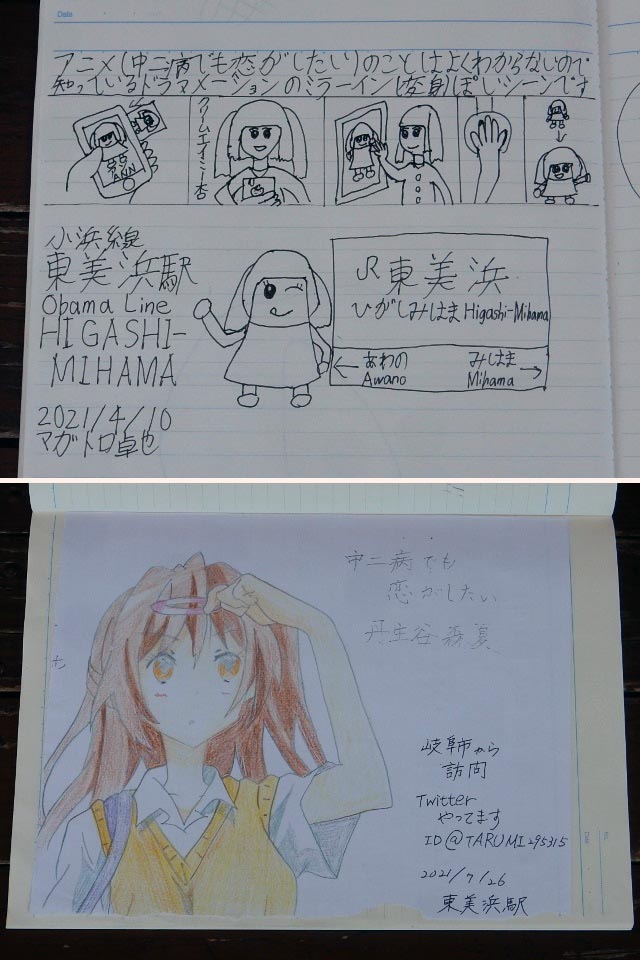 Date
アニメ(中二病でも恋がしたい)のことはよくわからないので
知っているドラマメージョンのミラーイン(変身)ぽいシーンです
小浜線
東美浜駅
Obama Line
HIGASHI-
MIHAMA
2021/4/10
マガトロ卓也
JR 東美浜
ひがしみはま Higashi-Mihama
← あわの みはま →
Awano Mihama
中二病でも
恋がしたい
丹生谷森夏
岐阜市から
訪問
Twitter
やってます
ID@TARUMI295315
2021/7/26
東美浜駅